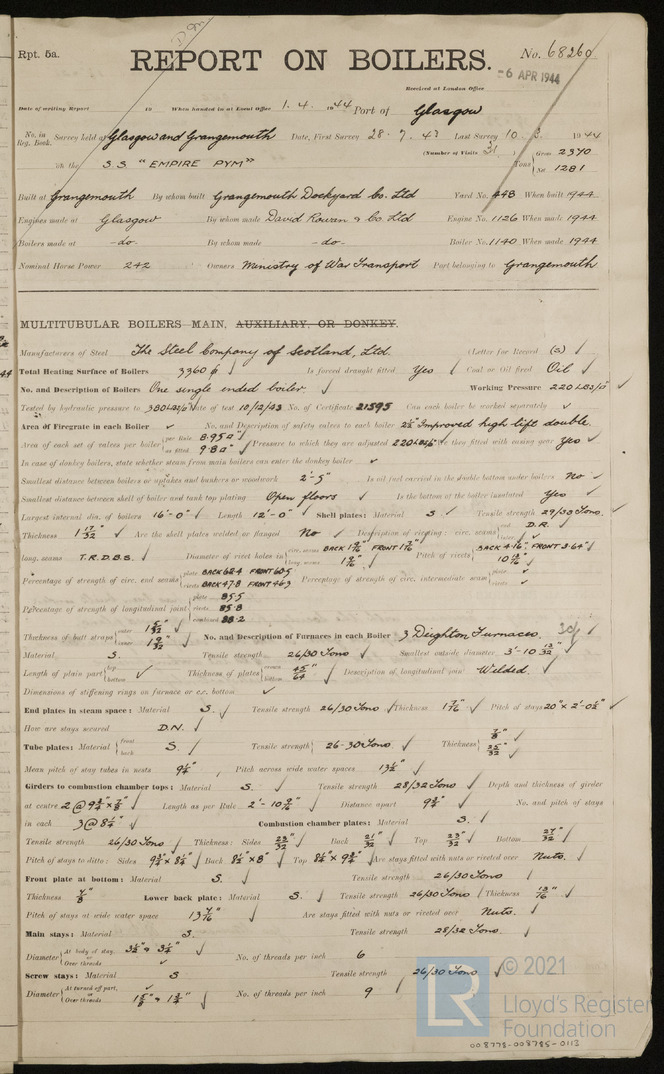 Rpt. 5a.
REPORT ON BOILERS.
No. 68260
Received at London Office
-6 APR 1944
Date of writing Report 19 When handed in at Local Office 1.4.1944 Port of Glasgow
No. in Reg. Book. Survey held at Glasgow and Grangemouth Date, First Survey 28.7.43 Last Survey 10. 3. 1944
(Number of Visits 31)
on the S.S. "EMPIRE PYM" Tons Gross 2370 Net 1281
Built at Grangemouth By whom built Grangemouth Dockyard Co. Ltd Yard No. 448 When built 1944
Engines made at Glasgow By whom made David Rowan & Co. Ltd Engine No. 1126 When made 1944
Boilers made at -do- By whom made -do- Boiler No. 1140 When made 1944
Nominal Horse Power 242 Owners Ministry of War Transport Port belonging to Grangemouth
MULTITUBULAR BOILERS MAIN, AUXILIARY, OR DONKEY.
Manufacturers of Steel The Steel Company of Scotland, Ltd. (Letter for Record (S)
Total Heating Surface of Boilers 3360 Is forced draught fitted Yes Coal or Oil fired Oil
No. and Description of Boilers One single ended boiler Working Pressure 220 LBS/□"
Tested by hydraulic pressure to 380 LBS/□" Date of test 10/12/43 No. of Certificate 21595 Can each boiler be worked separately
Area of Firegrate in each Boiler No. and Description of safety valves to each boiler 2½" Improved high lift double.
Area of each set of valves per boiler per Rule 8.95□" as fitted 9.8□" Pressure to which they are adjusted 220 LBS/□" Are they fitted with easing gear Yes
In case of donkey boilers, state whether steam from main boilers can enter the donkey boiler
Smallest distance between boilers or uptakes and bunkers or woodwork 2'-5" Is oil fuel carried in the double bottom under boilers No
Smallest distance between shell of boiler and tank top plating Open floors Is the bottom of the boiler insulated Yes
Largest internal dia. of boilers 16'-0" Length 12'-0" Shell plates: Material S Tensile strength 29/33 Tons.
Thickness 1 17/32" Are the shell plates welded or flanged No Description of riveting: circ. seams end D.R. inter.
long. seams T.R.D.B.S. Diameter of rivet holes in circ. seams long. seams Pitch of rivets BACK 4.16" FRONT 3.64"
Percentage of strength of circ. end seams plate BACK 62.4 FRONT 60.5 rivets BACK 47.8 FRONT 46.3 Percentage of strength of circ. intermediate seam plate rivets
Percentage of strength of longitudinal joint plate 85.5 rivets 85.8 combined 88.2
Thickness of butt straps outer 1 5/32" inner 1 9/32" No. and Description of Furnaces in each Boiler 3 Deighton Furnaces.
Material S. Tensile strength 26/30 Tons Smallest outside diameter 3'-10 13/32"
Length of plain part top bottom Thickness of plates crown bottom 45/64" Description of longitudinal joint Welded.
Dimensions of stiffening rings on furnace or c.c. bottom
End plates in steam space: Material S. Tensile strength 26/30 Tons Thickness 1 7/16" Pitch of stays 20" × 2'-0½"
How are stays secured D.N.
Tube plates: Material front back S. Tensile strength 26-30 Tons Thickness 7/8" 25/32"
Mean pitch of stay tubes in nests 9¼" Pitch across wide water spaces 13½"
Girders to combustion chamber tops: Material S. Tensile strength 28/32 Tons Depth and thickness of girder
at centre 2 @ 9¾" × 7/8" Length as per Rule Distance apart 9¾" No. and pitch of stays
in each 3 @ 8¼" Combustion chamber plates: Material S.
Tensile strength 26/30 Tons Thickness: Sides 23/32" Back 21/32" Top 23/32" Bottom 27/32"
Pitch of stays to ditto: Sides 9¾" × 8¼" Back 8½" × 8" Top 8¼" × 9¾" Are stays fitted with nuts or riveted over Nuts.
Front plate at bottom: Material S. Tensile strength 26/30 Tons
Thickness 7/8" Lower back plate: Material S. Tensile strength 26/30 Tons Thickness 13/16"
Pitch of stays at wide water space 13 7/16" Are stays fitted with nuts or riveted over Nuts.
Main stays: Material S. Tensile strength 28/32 Tons.
Diameter At body of stay, or Over threads 3½" & 3¼" No. of threads per inch 6
Screw stays: Material S Tensile strength 26/30 Tons
Diameter At turned off part, or Over threads 1 5/8" & 1¾" No. of threads per inch 9
© 2021
Lloyd's Register
Foundation
LR
008778-008785-0113